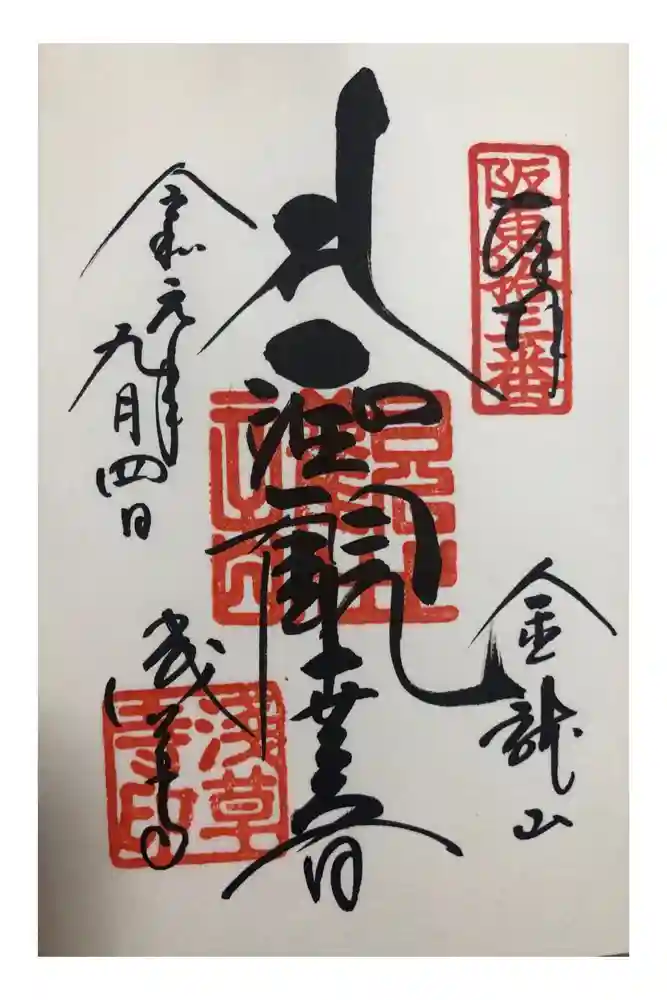 阪東拾三番
奉拝
金龍山
聖観世音
令和元年
九月四日
浅草寺
浅草寺印